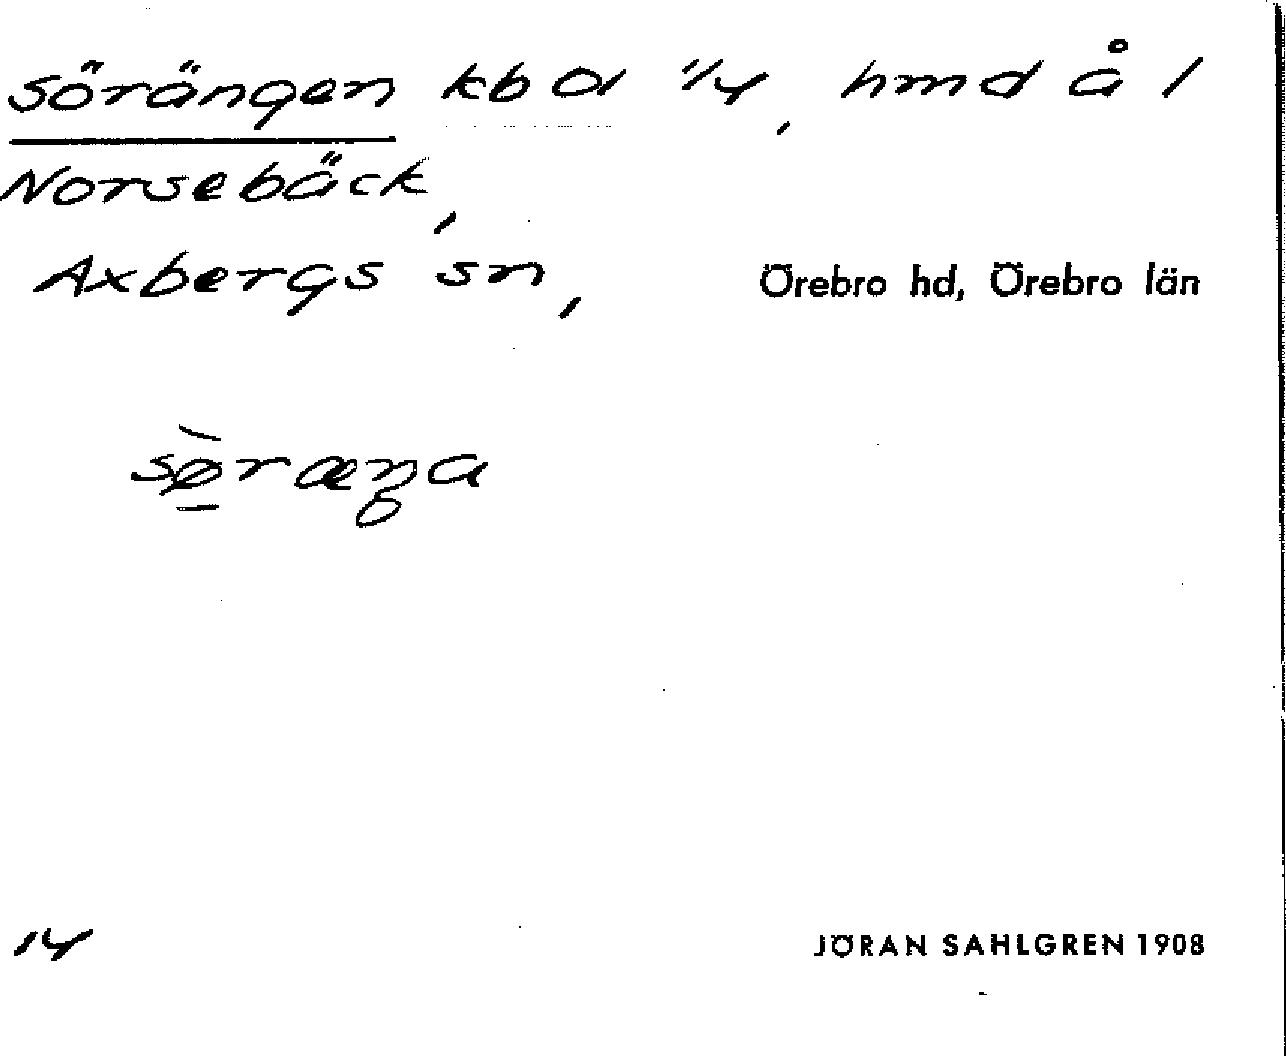 Sörängen kb a 1/4, hmd å 1
Norsebäck,
Axbergs sn, Örebro hd, Örebro län
sø̱̀ræŋa
14
JÖRAN SAHLGREN 1908